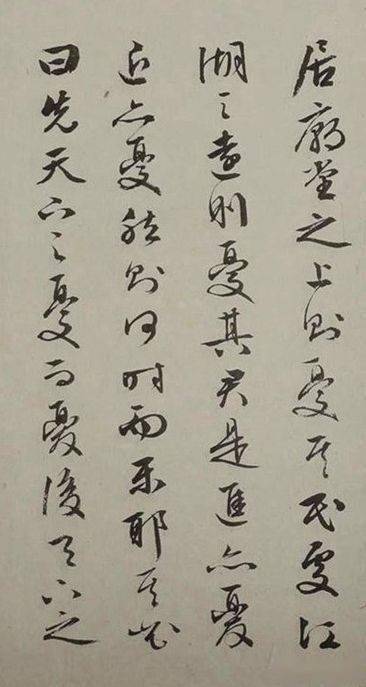 居廟堂之上則憂其民處江
湖之遠則憂其君是進亦憂
退亦憂然則何時而樂耶其必
曰先天下之憂而憂後天下之